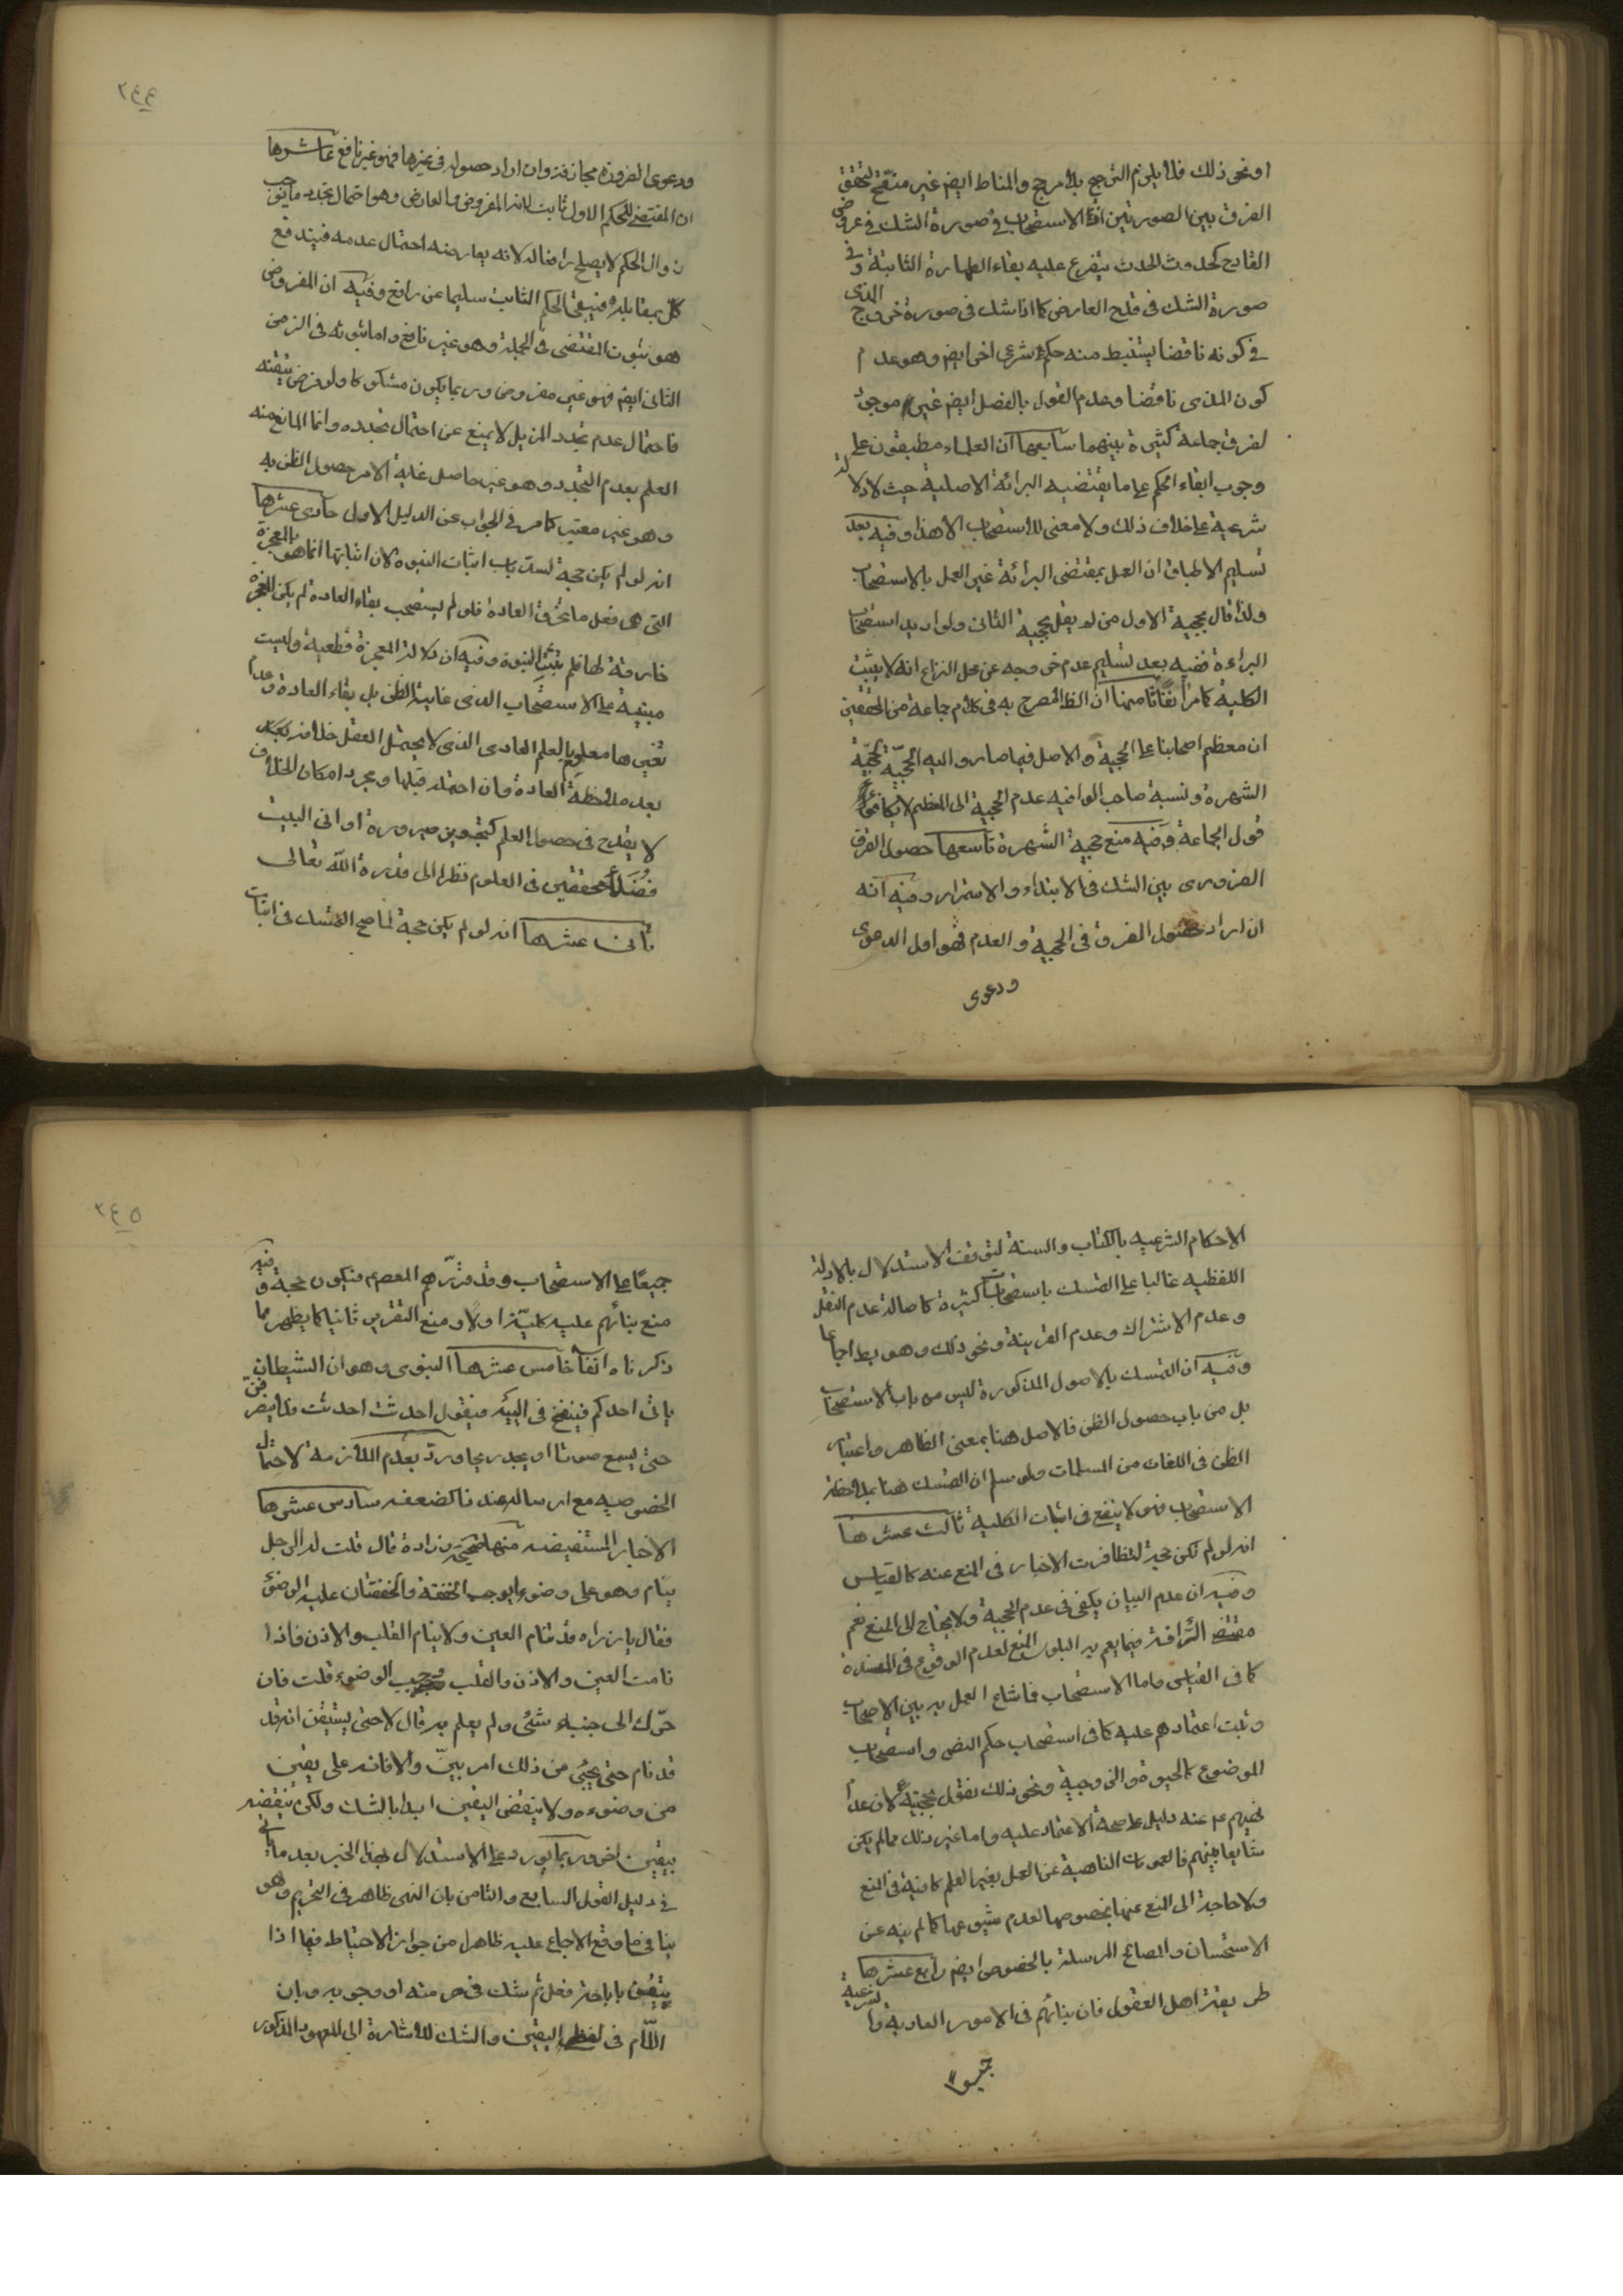 او نحو ذلك فلا يلزم الترجيح بلا مرجح والمناط ايضم غير منقح لتحقق
الفرق بين الصورتين اذ الاستصحاب في صورة الشك في عروض
القادح كحدوث الحدث يتفرع عليه بقاء الطهارة الثابتة وفي
صورة الشك في قدح العارض كما اذا شك في صورة خروج المذى
في كونه ناقضا يستنبط منه حكم شرعى اخر ايضم وهو عدم
كون المذى ناقضا وعدم القول بالفصل ايضم غير موجود
لفرق جماعة كثيرة بينهما سابعها ان العلماء مطبقون على
وجوب ابقاء الحكم على ما يقتضيه البرائة الاصلية حيث لا دلالة
شرعية على خلاف ذلك ولا معنى للاستصحاب الا هذا وفيه بعد
تسليم الاطباق ان العمل بمقتضى البرائة غير العمل بالاستصحاب
ولذا قال بحجية الاول من لم يقل بحجية الثانى ولو اريد استصحاب
البراءة ففيه بعد تسليم عدم خروجه عن محل النزاع انه لا يثبت
الكلية كما مر آنفا ثامنها ان الظ المصرح به في كلام جماعة من المحققين
ان معظم اصحابنا على الحجية والاصل فيما صاروا اليه الحجيّة لحجيّة
الشهرة ونسبة صاحب الوافيه عدم الحجية الى المعظم لا يكافئ
قول الجماعة وفيه منع حجية الشهرة تاسعها حصول الفرق
الضرورى بين الشك في الابتداء والاستمرار وفيه انه
ان اراد حصول الفرق في الحجية والعدم فهو اول الدعوى
ودعوى
٢٤٤
ودعوى الضرورة مجازفة وان اراد حصوله في غيرها فهو غير نافع عاشرها
ان المقتضى للحكم الاول ثابت لانه المفروض والعارض وهو احتمال تجدد ما يوجب
زوال الحكم لا يصلح رافعا له لانه يعارضه احتمال عدمه فيتدافع
كل بمقابله فيبقى الحكم الثابت سليما عن رافع وفيه ان المفروض
هو ثبوت المقتضى في الجملة وهو غير نافع واما ثبوته في الزمن
الثانى ايضم فهو غير مفروض وربما يكون مشكوكا ولو فرض تيقنه
فاحتمال عدم تجدد المزيل لا يمنع عن احتمال تجدده وانما المانع منه
العلم بعدم التجدد وهو غير حاصل غاية الامر حصول الظن به
وهو غير معتبر كما مر في الجواب عن الدليل الاول حادى عشرها
انه لو لم يكن حجة لسدّ باب اثبات النبوة لان اثباتها انما هو بالمعجزة
التى هى فعل ما خرق العادة فلو لم يستصحب بقاء العادة لم يكن المعجزة
خارقة لها فلم يثبت النبوة وفيه ان دلالة المعجزة قطعية وليست
مبنية على الاستصحاب الذى غايته الظن بل بقاء العادة وعدم
تغيرها معلوم بالعلم العادى الذى لا يحتمل العقل خلافه
بعد ملاحظة العادة وان احتمله قبلها ومجرد امكان الخلاف
لا يقدح في حصول العلم كتجويز صيرورة اوانى البيت
فضلاء محققين في العلوم نظرا الى قدرة اللّه تعالى
ثانى عشرها انه لو لم يكن حجة لما صح التمسك في اثبات
الاحكام الشرعيه بالكتاب والسنة لتوقف الاستدلال بالادلة
اللفظيه غالبا على التمسك باستصحابات كثيرة كاصالة عدم النقل
وعدم الاشتراك وعدم القرينة ونحو ذلك وهو بط اجماعا
وفيه ان التمسك بالاصول المذكورة ليس من باب الاستصحاب
بل من باب حصول الظن فالاصل هنا بمعنى الظاهر واعتبار
الظن في اللغات من المسلمات ولو سلم ان التمسك هنا بملاحظة
الاستصحاب فهو لا ينفع في اثبات الكلية ثالث عشرها
انه لو لم تكن حجة لتظافرت الاخبار في المنع عنه كالقياس
وفيه ان عدم البيان يكفى في عدم الحجية ولا يحتاج الى المنع نعم
مقتضى الرأفة فيما يعم به البلوى المنع لعدم الوقوع في المفسدة
كما في القياس واما الاستصحاب فما شاع العمل به بين الاصحاب
وثبت اعتمادهم عليه كما في استصحاب حكم النص واستصحاب
الموضوع كالحيوة والزوجية ونحو ذلك نقول بحجيته لان عدم
نهيهم عم عنه دليل على صحة الاعتماد عليه واما غير ذلك مما لم يكن
شايعا بينهم فالعمومات الناهية عن العمل بغير العلم كافية في المنع
ولا حاجة الى المنع عنها بخصوصها لعدم شيوعها كما لم ينه عن
الاستحسان والمصالح المرسلة بالخصوص ايضم رابع عشرها
طريقة اهل العقول فان بنائهم في الامور العادية والشرعية
جميعا
٢٤٥
جميعًا على الاستصحاب وقد قرّرهم المعصوم فيكون حجة وفيه
منع بنائهم عليه كلية اولا ومنع التقرير ثانيا كما يظهر مما
ذكرناه آنفا خامس عشرها النبوى وهو ان الشيطان
ياتى احدكم فينفخ في اليته فيقول احدثت احدثت فلا ينصرفنّ
حتى يسمع صوتا او يجد ريحا ورد بعدم الملازمة لاحتمال
الخصوصيه مع ارساله عندنا كضعفه سادس عشرها
الاخبار المستفيضه منها صحيحة زرارة قال قلت له الرجل
ينام وهو على وضوء ايوجب الخفقة والخفقتان عليه الوضوء
فقال يا زراره قد تنام العين ولا ينام القلب والاذن فاذا
نامت العين والاذن والقلب وجب الوضوء قلت فان
حرّك الى جنبه شئ ولم يعلم به قال لا حتى يستيقن انه قد
قد نام حتى يجئ من ذلك امر بيّن والا فانه على يقين
من وضوءه ولا ينقض اليقين ابدا بالشك ولكن ينقضه
بيقين اخر وربما يورد على الاستدلال بهذا الخبر بعد ما ياتى
في دليل القول السابع والثامن بان النهى ظاهر في التحريم وهو
ينافى ما وقع الاجماع عليه ظاهرا من جواز الاحتياط فيما اذا
يتيقن باباحة فعل ثم شك في حرمته او وجوبه وبان
اللّام في لفظى اليقين والشك للاشارة الى المعهود المذكور